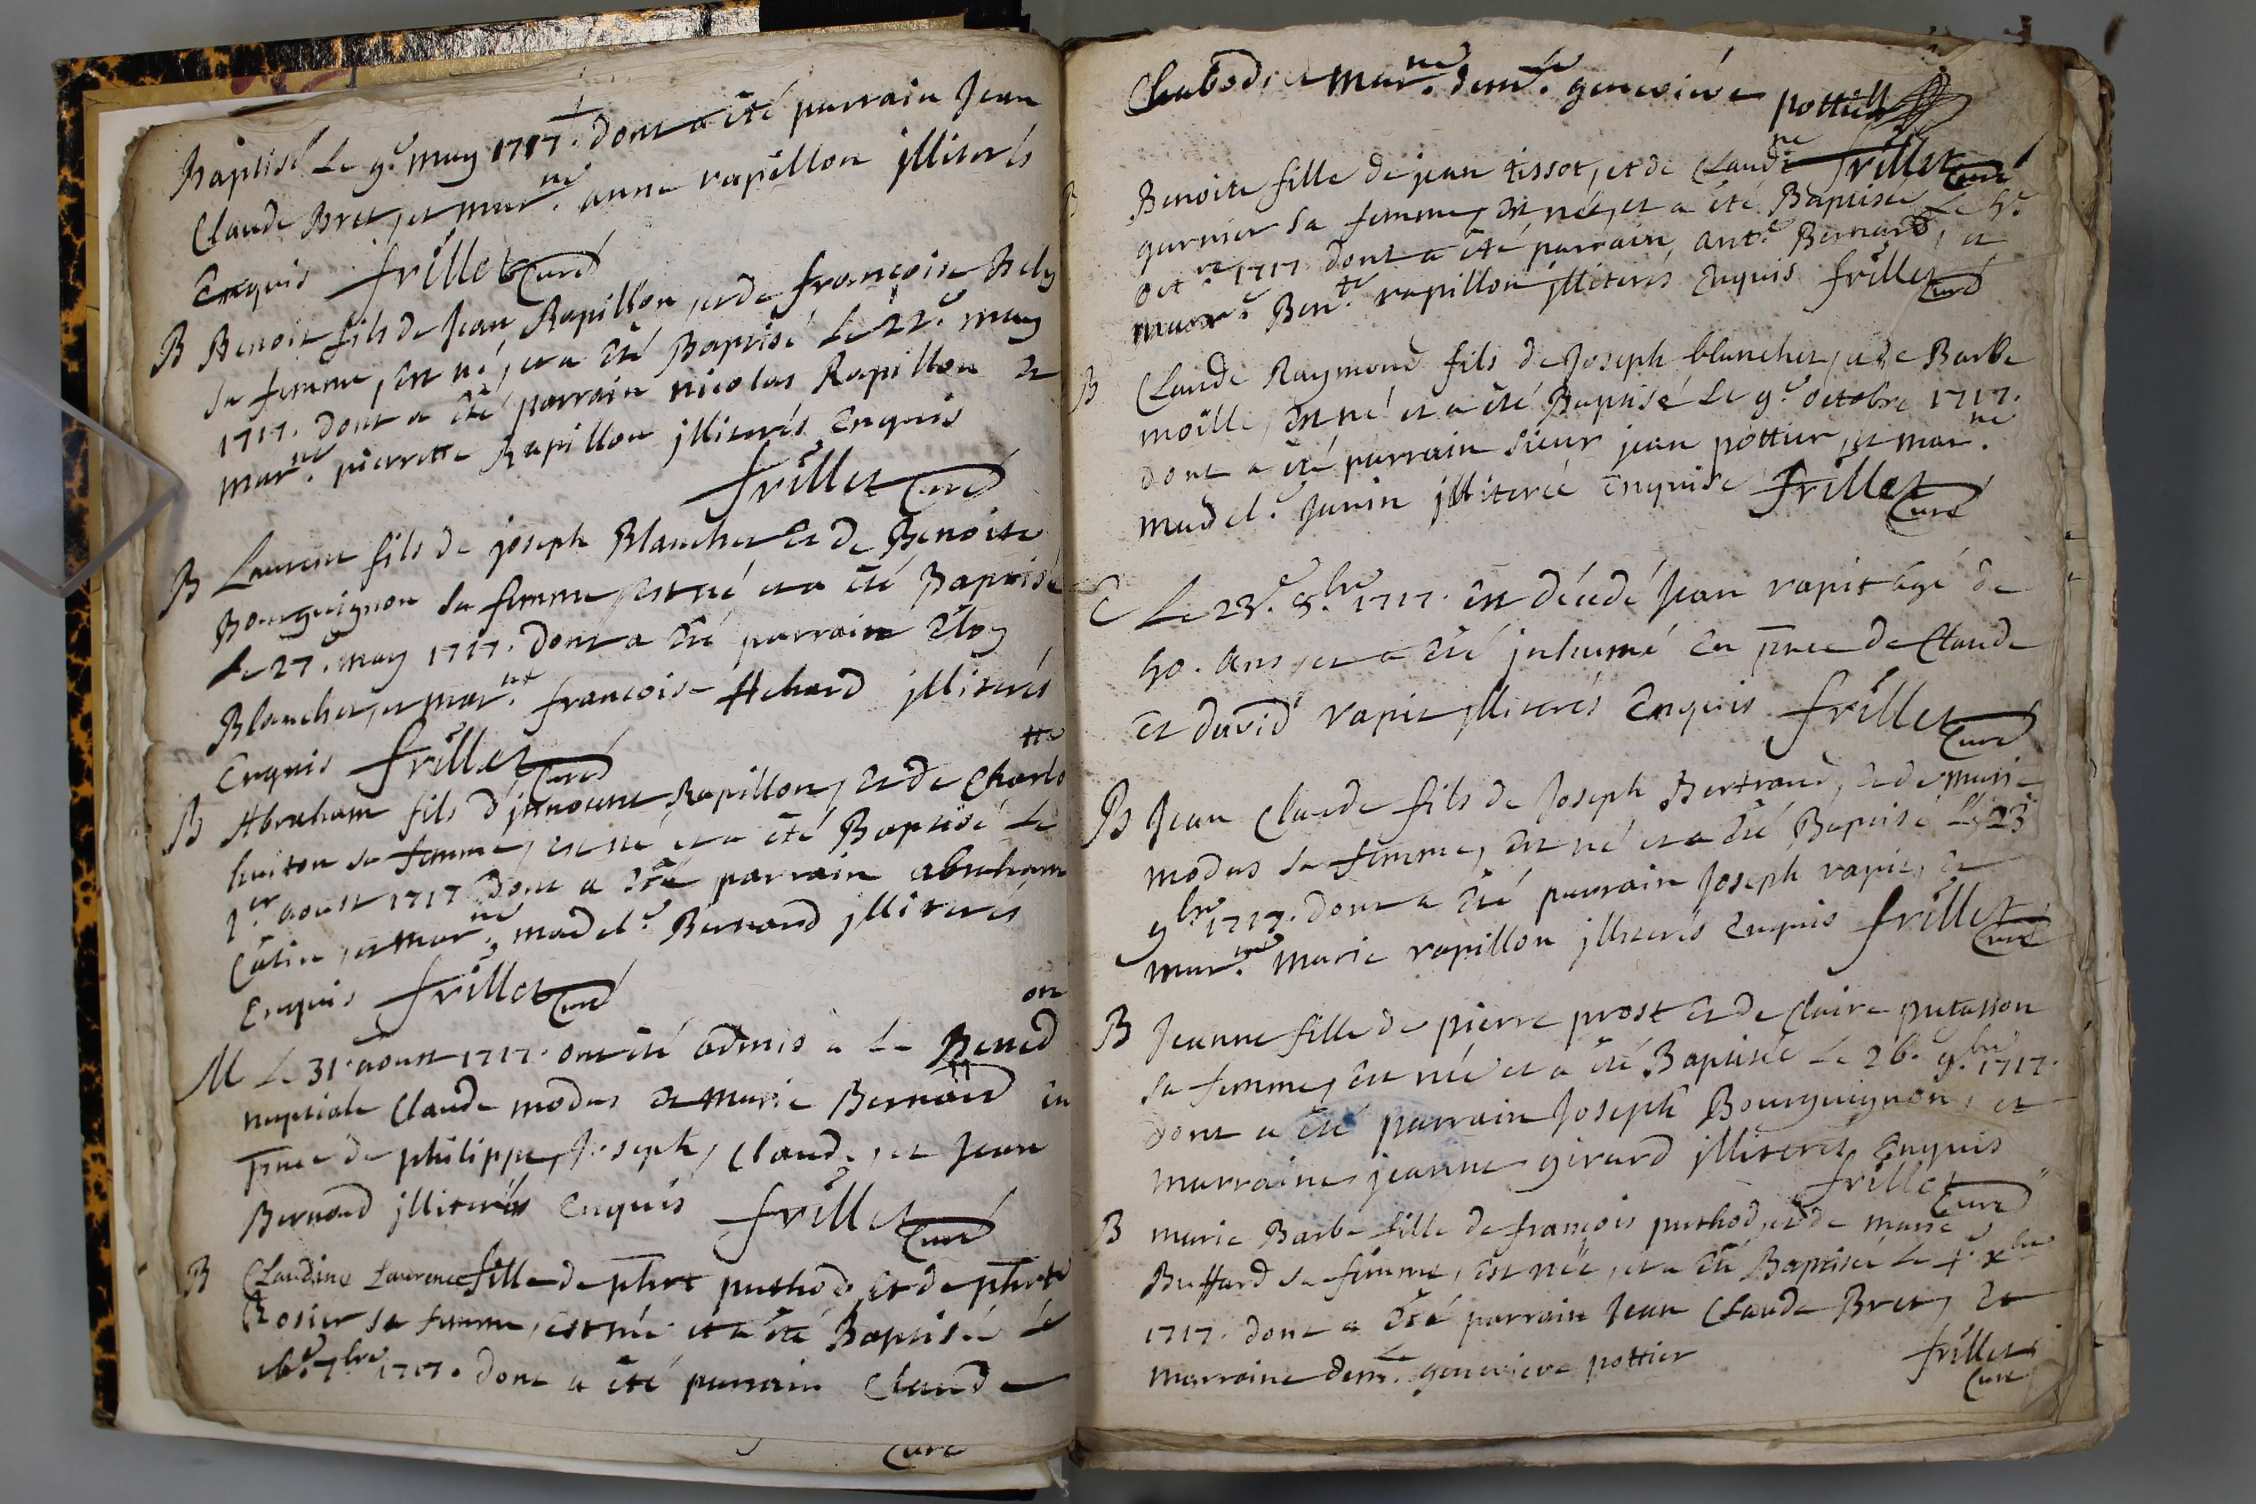 Baptisé le 9.e may 1717. dont a été parrain Jean
Claude Bret, et mar.ne anne rapillon jlliterés
Enquis frillet Curé
B Benoit fils de Jean Rapillon, et de françoise Bely
sa femme, est né, et a été Baptisé le 22.e may
1717. dont a été parrain nicolas Rapillon et
mar.ne pierrette Rapillon jlliterés Enquis
frillet Curé
B Laurent fils de joseph Blanchet et de Benoite
Bourguignon sa femme, est né et a été Baptisé
le 27. may 1717. dont a été parrain Eloy
Blanchet, et mar.ne françoise Hebard jlliterés
Enquis frillet Curé
B Abraham fils d'jnnocent Rapillon, et de Charlo tte
huiton sa femme, est né et a été Baptisé le
1.er aoust 1717 dont a été parrain abraham
Catin, et mar.ne madel.e Bernard jlliterés
Enquis frillet Curé
M Le 31. aoust 1717. ont été admis a la Bened on
nuptiale Claude modas et marie Bernard en
pnce de philippe, Joseph, Claud.e, et Jean
Bernard jlliterés Enquis frillet Curé
B Claudine Laurence fille de phrt puthod, et de phrte
Rosier sa femme, est née et a été Baptisée le
16.e 7.bre 1717. dont a été parrain Claude
Curé
Chabod, et mar.ne dem.le genevieve pottier
B Benoite fille de jean tissot, et de Claud.ne frillet Curé
garnier sa femme, est née, et a été Baptisée le 5.e
oct.re 1717. dont a été parrain ant.e Bernard, et
marr.e Ben.te rapillon jlliterés Enquis frillet Curé
B Claude Raymond fils de Joseph blanchet, et de Barbe
moille, est né et a été Baptisé le 9.e octobre 1717.
dont a été parrain sieur jean pottier, et mar.ne
madel.e Janin jlliterée enquise frillet Curé
E Le 23.e 8.bre 1717. est décedé Jean rapit agé de
50. ans, et a été jnhumé en pnce de Claude
et david rapit jlliterés Enquis frillet Curé
B Jean Claude fils de Joseph Bertrand, et de marie
modas sa femme, est né et a été Baptisé le 23
9.bre 1717. dont a été parrain Joseph rapit, et
mar.ne marie rapillon jlliterés Enquis frillet Curé
B Jeanne fille de pierre prost et de Claire putasson
sa femme, est née et a été Baptisée le 26.e 9.bre 1717.
dont a été parrain Joseph Bourguignon, et
marraine jeanne girard jlliterés Enquis
frillet Curé
B marie Barbe fille de françois puthod, et de marie
Buffard sa femme, est née, et a été Baptisée le x.bre
1717. dont a été parrain Jean Claude Bret, et
marraine dem.le genevieve pottier frillet Curé